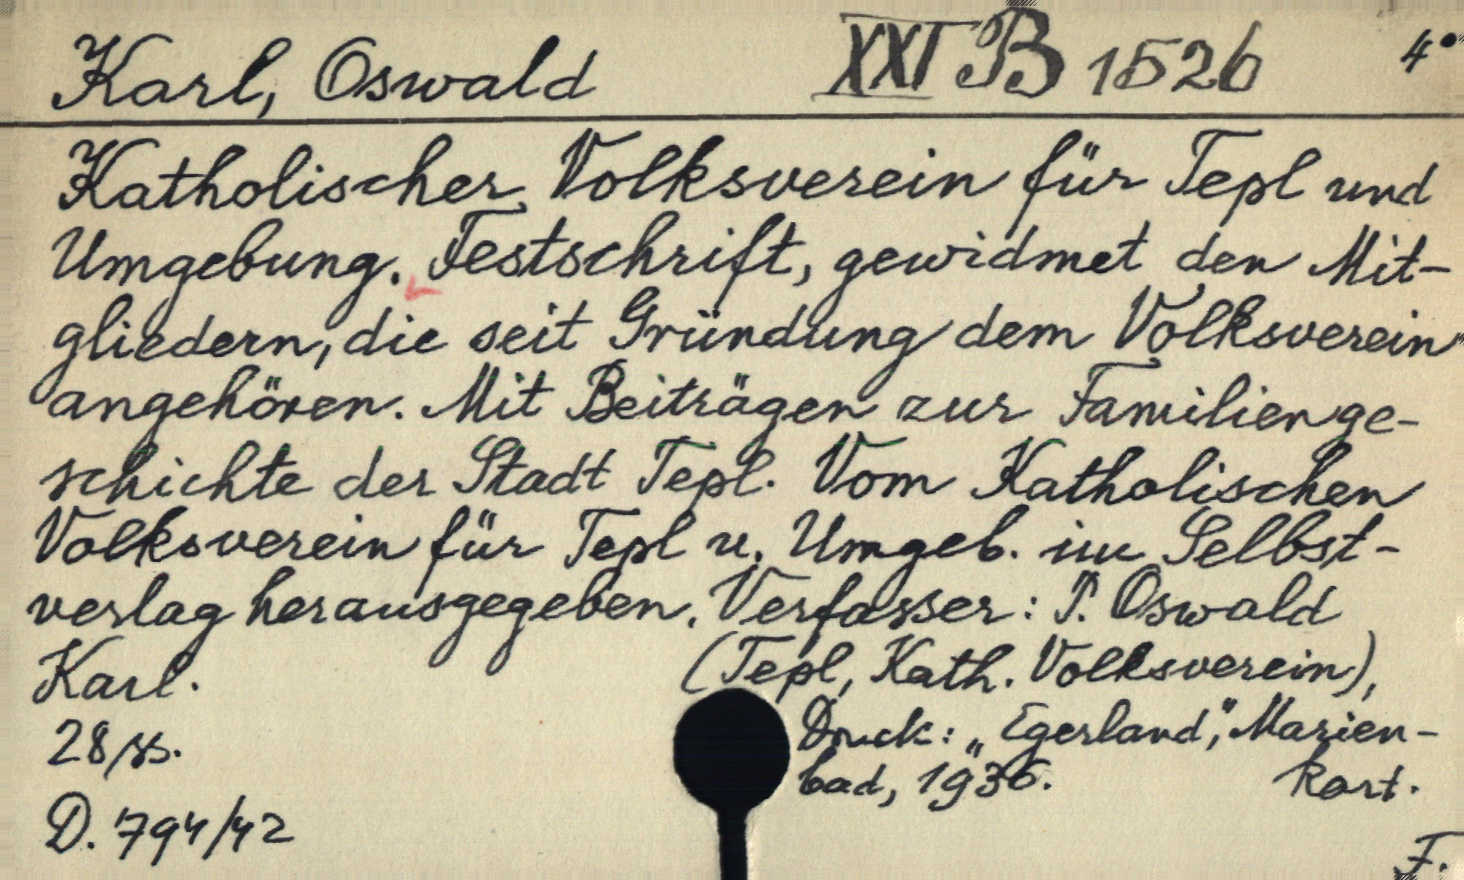 Karl, Oswald XXI B 1526 4°
Katholischer Volksverein für Tepl und
Umgebung. Festschrift, gewidmet den Mit-
gliedern, die seit Gründung dem Volksverein
angehören. Mit Beiträgen zur Familienge-
schichte der Stadt Tepl. Vom Katholischen
Volksverein für Tepl u. Umgeb. im Selbst-
verlag herausgegeben. Verfasser: P. Oswald
Karl. (Tepl, Kath. Volksverein),
28 ss. Druck: „Egerland", Marien-
bad, 1936. kart.
D. 794/42
F.